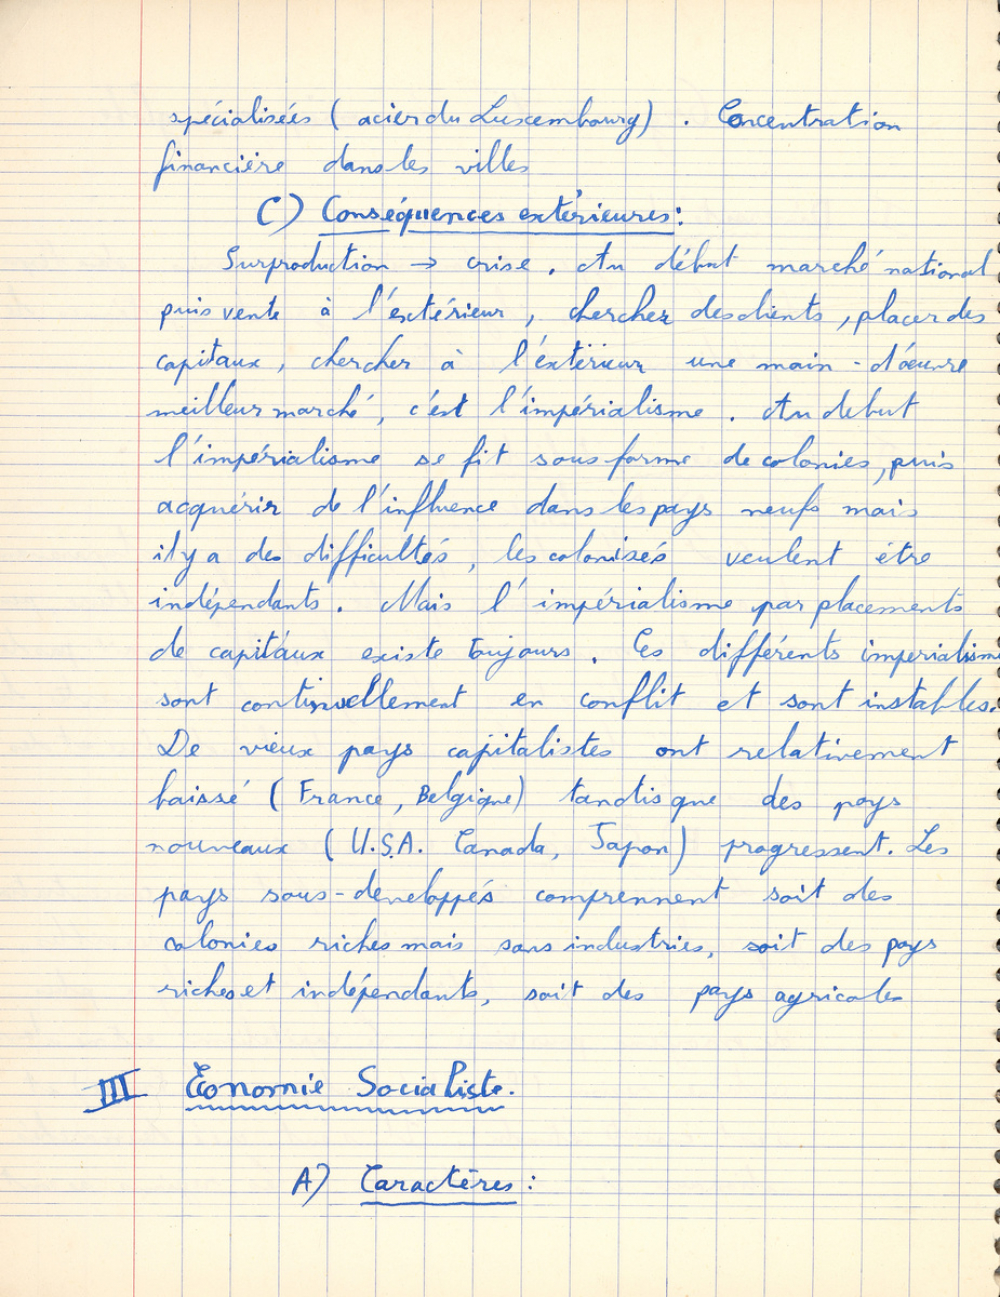 spécialisées ( acier du Luxembourg) . Concentration
financière dans les villes
C) Conséquences extérieures :
Surproduction → crise . Au début marché national
puis vente à l'extérieur , chercher des clients , placer des
capitaux , chercher à l'éxtérieur une main - d'oeuvre
meilleur marché , c'est l'impérialisme . Au debut
l'impérialisme se fit sous forme de colonies , puis
acquérir de l'influence dans les pays neufs mais
il y a des difficultés , les colonisés veulent être
indépendants . Mais l'impérialisme par placements
de capitaux existe toujours . Ces différents imperialisme
sont continuellement en conflit et sont instables .
De vieux pays capitalistes ont relativement
baissé ( France , Belgique) tandis que des pays
nouveaux ( U.S.A. Canada , Japon) progressent . Les
pays sous - developpés comprennent soit des
colonies riches mais sans industries , soit des pays
riches et indépendants , soit des pays agricoles
III Economie Socialiste .
A) Caractères :